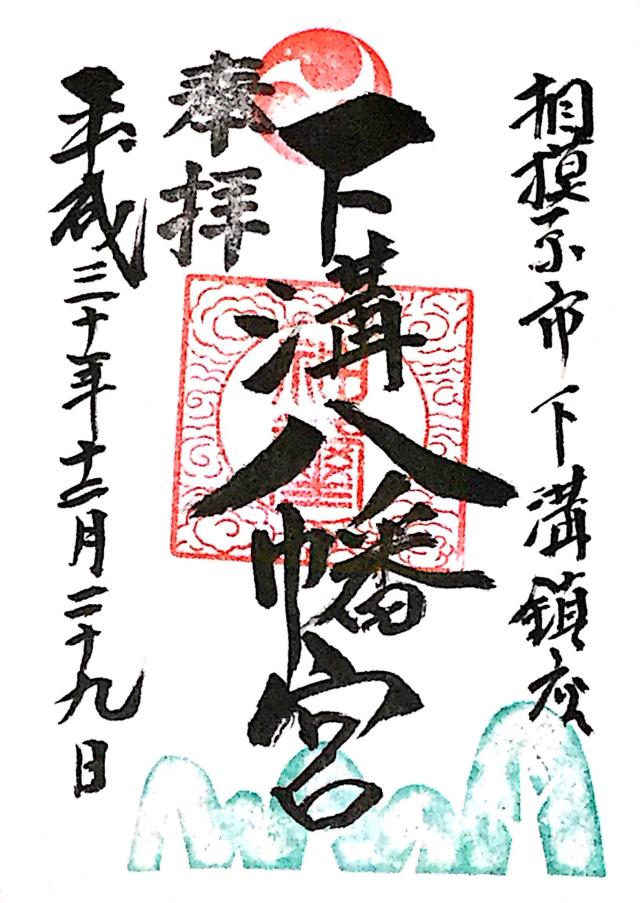 相模原市下溝鎮座
下溝八幡宮
奉拝
平成三十年十二月二十九日